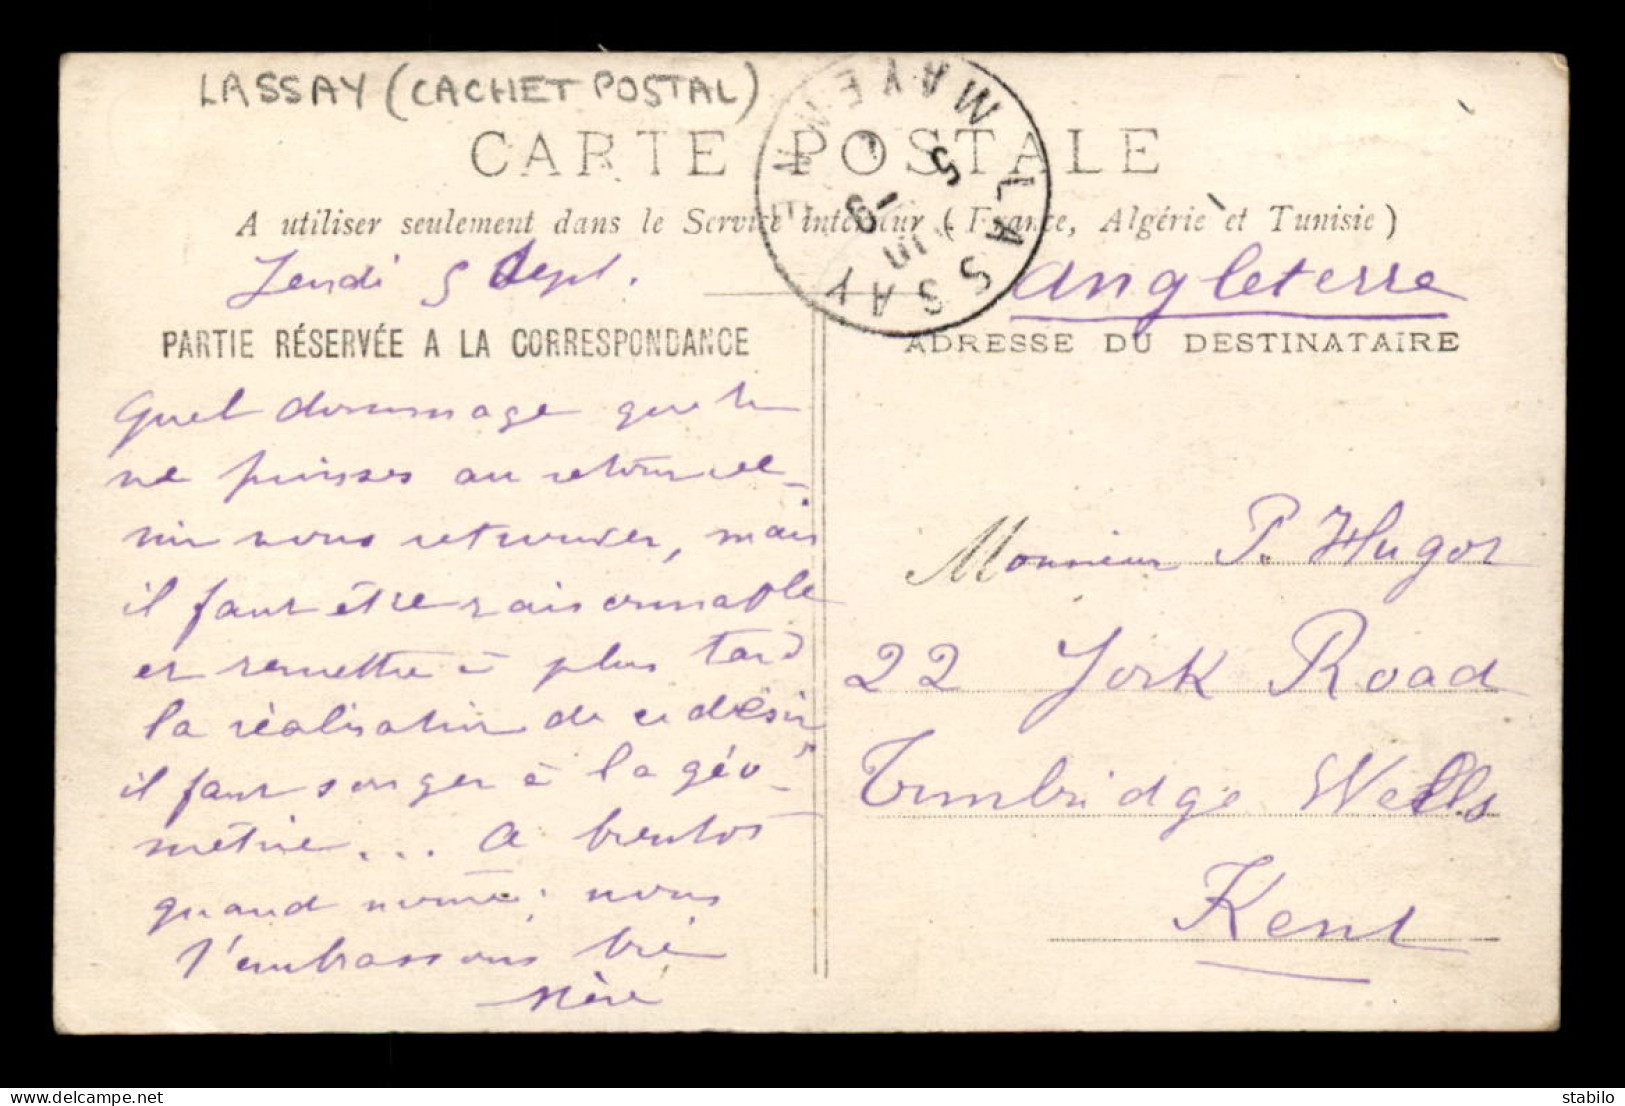 LASSAY (CACHET POSTAL)
CARTE POSTALE
A utiliser seulement dans le Service intérieur (France, Algérie et Tunisie)
LASSAY
MAYENNE
5
9
Jeudi 5 Sept.
Angleterre
PARTIE RÉSERVÉE A LA CORRESPONDANCE
ADRESSE DU DESTINATAIRE
Quel dommage que tu
ne puisses au retour ve-
nir nous retrouver, mais
il faut être raisonnable
et remettre à plus tard
la réalisation de ce désir
il faut songer à la géo-
métrie... A bientôt
quand même; nous
t'embrassons
Mère
Monsieur P. Hugot
22 York Road
Tunbridge Wells
Kent
delcampe.net
stabilo